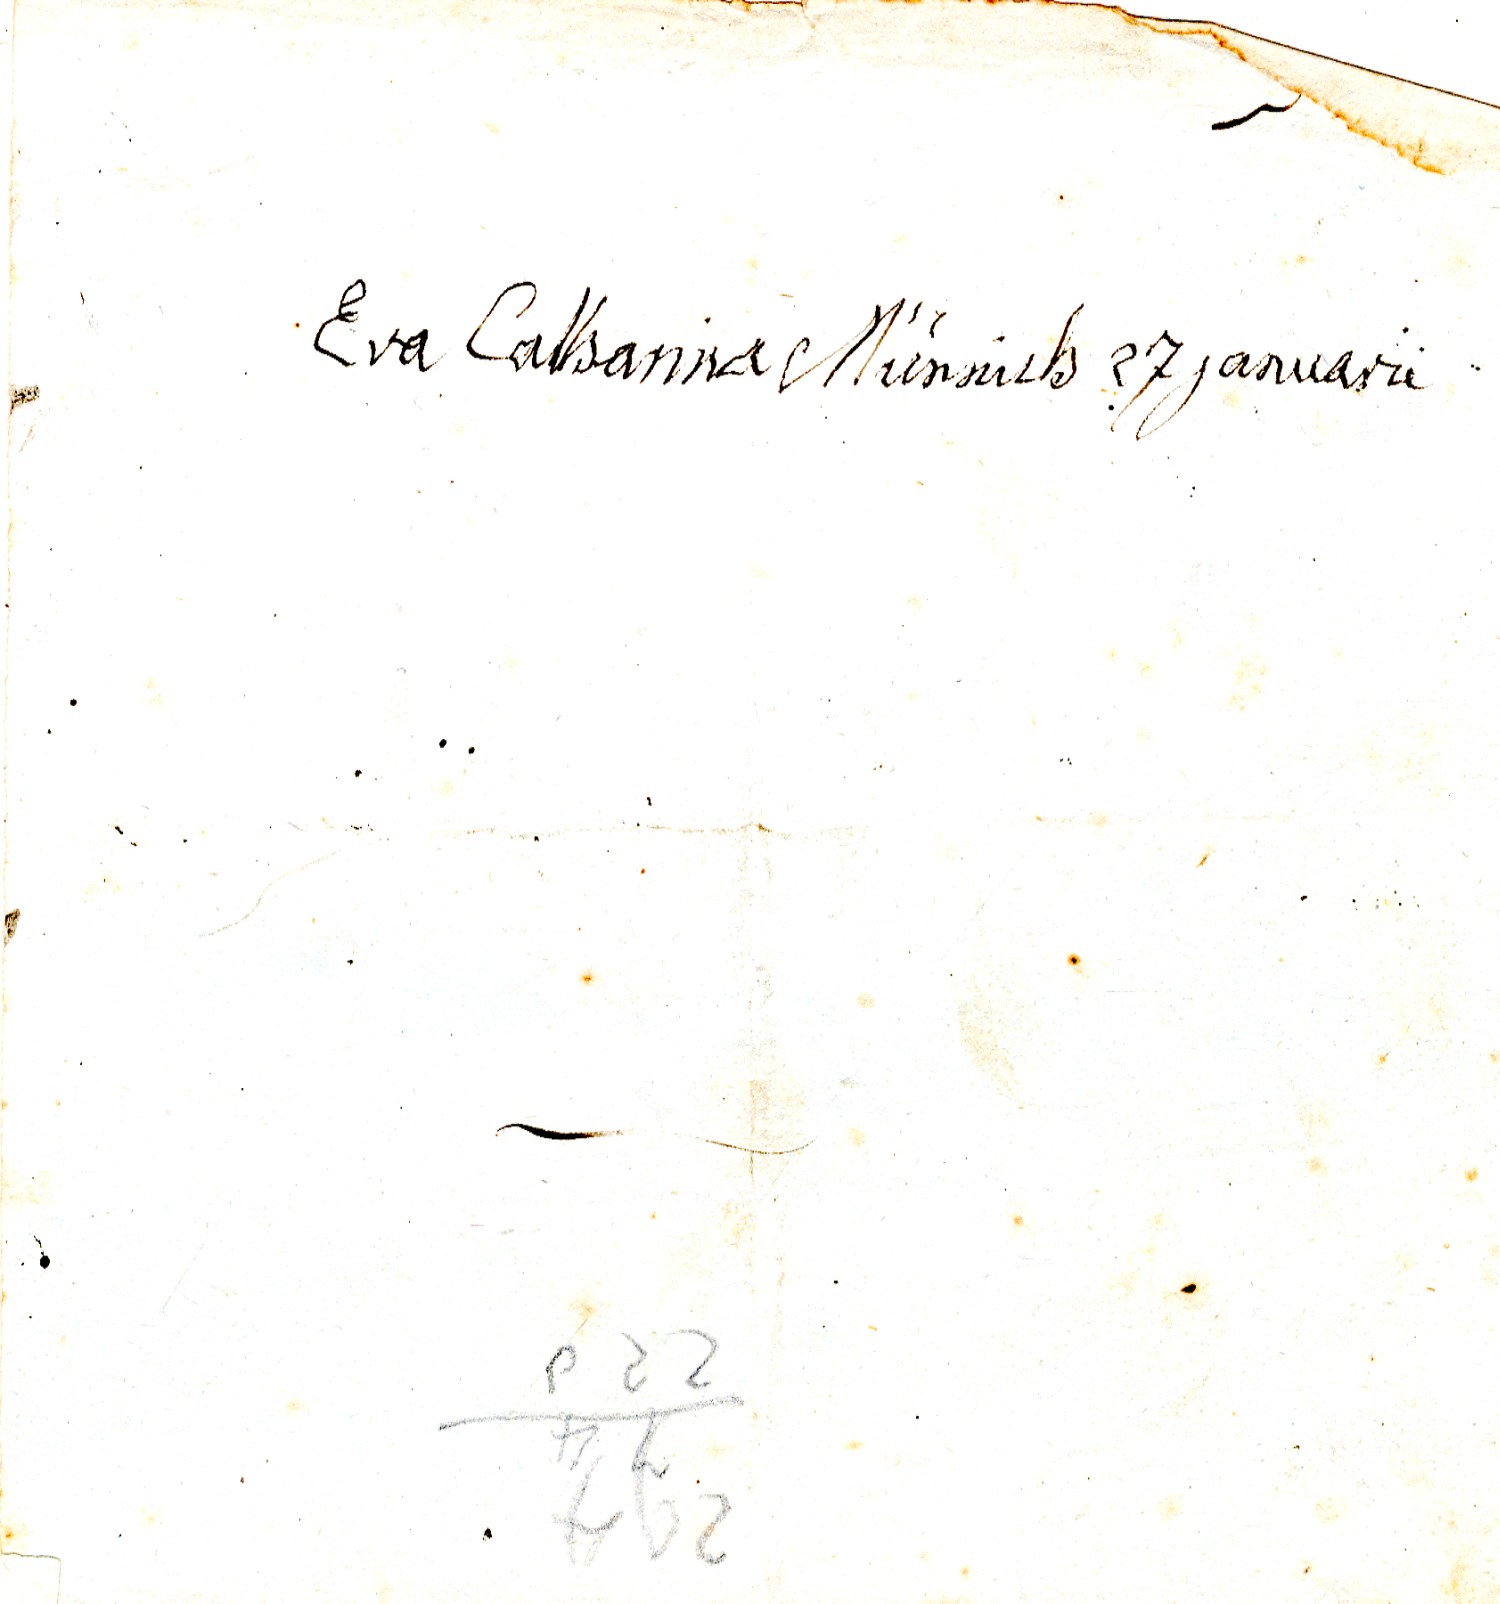 Eva Catharina Münnich 27 januarii